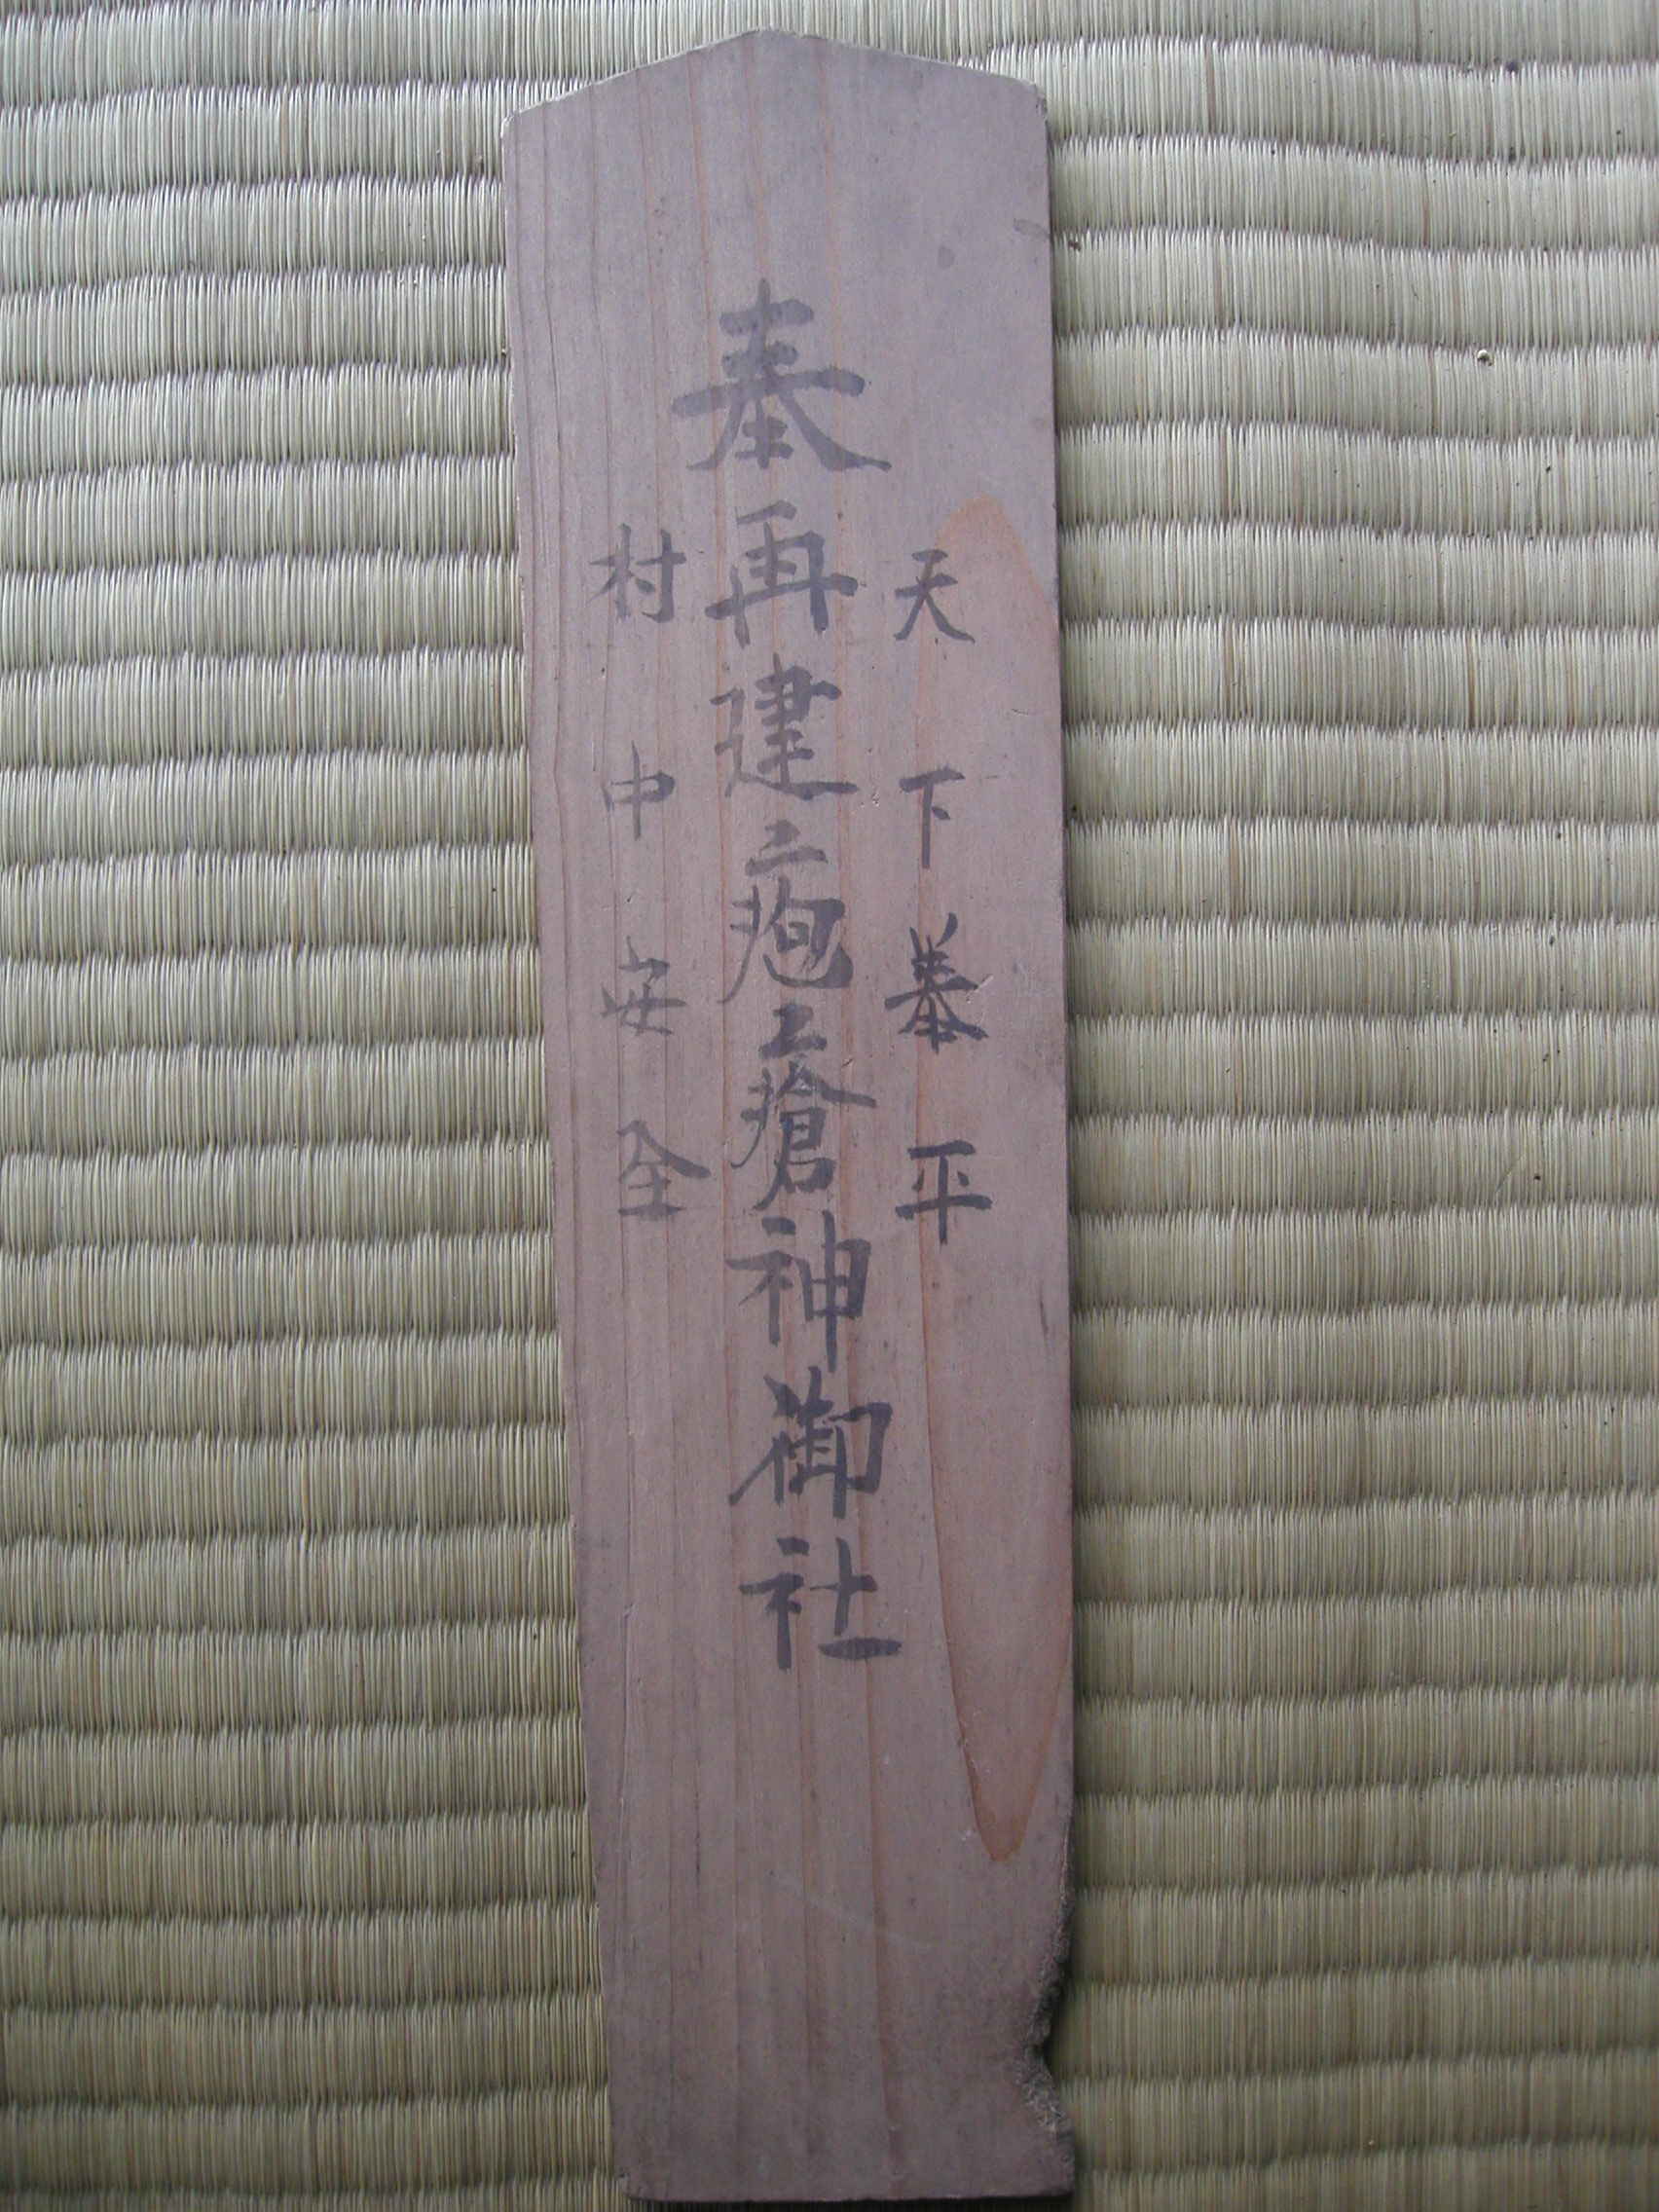 天下泰平
奉再建疱瘡神御社
村中安全